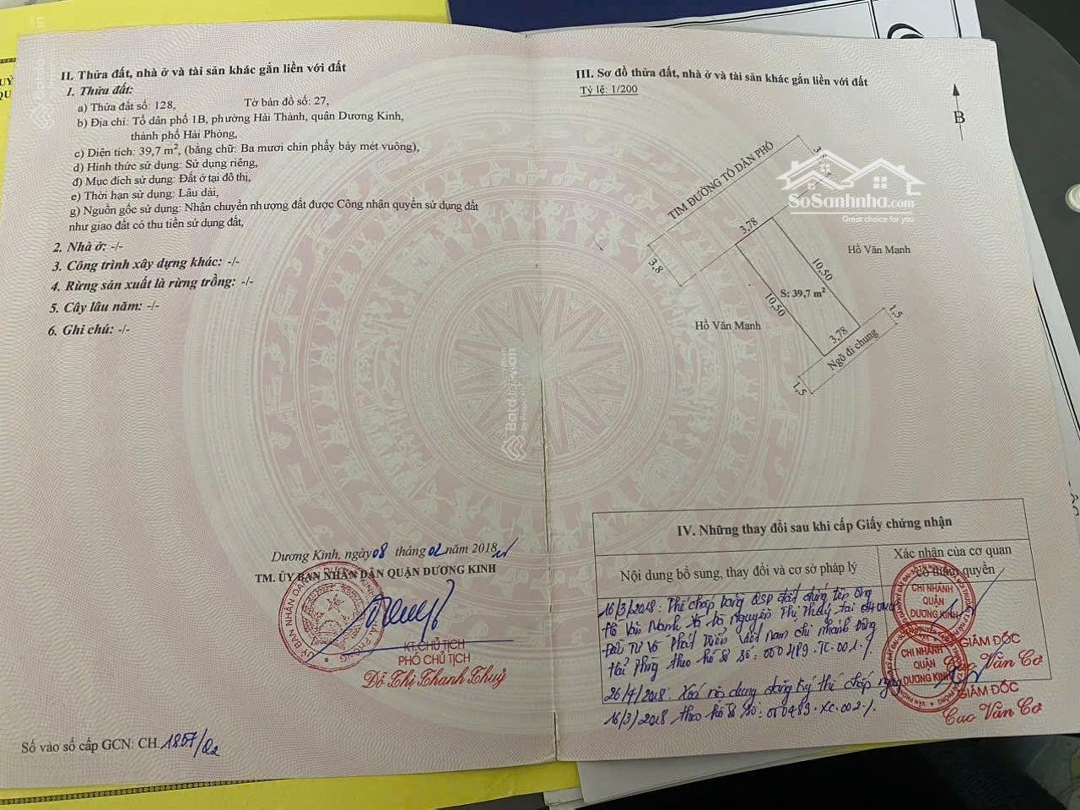 II. Thửa đất, nhà ở và tài sản khác gắn liền với đất
1. Thửa đất:
a) Thửa đất số: 128, Tờ bản đồ số: 27,
b) Địa chỉ: Tổ dân phố 1B, phường Hải Thành, quận Dương Kinh,
thành phố Hải Phòng,
c) Diện tích: 39,7 m², (bằng chữ: Ba mươi chín phẩy bảy mét vuông),
d) Hình thức sử dụng: Sử dụng riêng,
đ) Mục đích sử dụng: Đất ở tại đô thị,
e) Thời hạn sử dụng: Lâu dài,
g) Nguồn gốc sử dụng: Nhận chuyển nhượng đất được Công nhận quyền sử dụng đất
như giao đất có thu tiền sử dụng đất,
2. Nhà ở: -/-
3. Công trình xây dựng khác: -/-
4. Rừng sản xuất là rừng trồng: -/-
5. Cây lâu năm: -/-
6. Ghi chú: -/-
Dương Kinh, ngày 08 tháng 02 năm 2018
TM. ỦY BAN NHÂN DÂN QUẬN DƯƠNG KINH
KT.CHỦ TỊCH
PHÓ CHỦ TỊCH
Đỗ Thị Thanh Thuỷ
Số vào sổ cấp GCN: CH. 1857/Q2
III. Sơ đồ thửa đất, nhà ở và tài sản khác gắn liền với đất
Tỷ lệ: 1/200
B
TIM ĐƯỜNG TỔ DÂN PHỐ
3,8
3,78
3,8
Hồ Văn Mạnh
10,50
S: 39,7 m²
10,50
Hồ Văn Mạnh
3,78
1,5
Ngõ đi chung
1,5
SoSanhnha.com
Great choice for you
Batdongsan
IV. Những thay đổi sau khi cấp Giấy chứng nhận
Nội dung bổ sung, thay đổi và cơ sở pháp lý
Xác nhận của cơ quan
có thẩm quyền
16/3/2018: Thế chấp bằng QSD đất chung tên ông
Hồ Văn Mạnh và bà Nguyễn Thị Thuỷ tại
Đầu tư và Phát triển Việt Nam chi nhánh Đông
Hải Phòng theo hồ sơ số: 000489.TC.001./.
26/4/2018: Xoá nội dung đăng ký thế chấp ngày
16/3/2018 theo hồ sơ số: 000489.XC.002./.
CHI NHÁNH
QUẬN
DƯƠNG KINH
GIÁM ĐỐC
Cao Văn Cơ
CHI NHÁNH
QUẬN
DƯƠNG KINH
GIÁM ĐỐC
Cao Văn Cơ